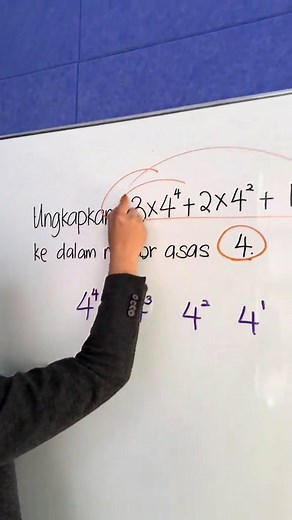 Ungkapkan 3×4⁴+2×4²+
ke dalam asas 4.
4⁴ ³ 4² 4¹